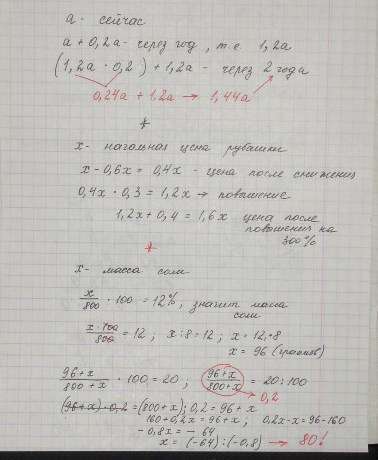 а - сейчас
а + 0,2а - через год, т.е 1,2а
(1,2а · 0,2) + 1,2а - через 2 года
0,24а + 1,2а → 1,44а
*
х - начальная цена рубашки
х - 0,6х = 0,4х - цена после снижения
0,4х · 0,3 = 1,2х → повышение
1,2х + 0,4 = 1,6х цена после
повышения на
300%
*
х - масса соли
х/800 · 100 = 12%, значит масса
соли
х·100/800 = 12; х:8 = 12; х = 12·8
х = 96 (граммов)
96+х/800+х · 100 = 20; 96+х/800+х = 20:100
0,2
(96+х)·0,2 = (800+х); 0,2 = 96 + х
160 + 0,2х = 96 + х; 0,2х - х = 96 - 160
- 0,8х = - 64
х = (-64) : (-0,8) → 80!